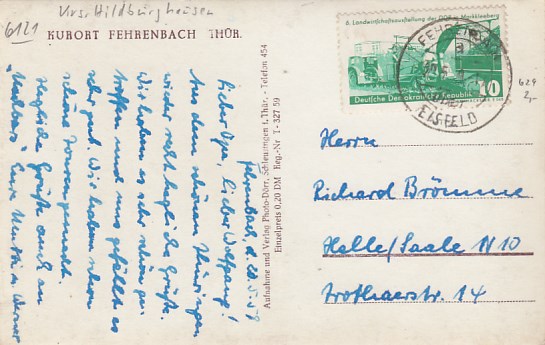 Krs. Hildburghausen
6121
KURORT FEHRENBACH THÜR.
Fehrenbach, d.
Lieber Opa, lieber Wolfgang!
Aus dem schönen Thüringen
wieder recht herzliche Grüße.
Wir haben es sehr schön ge-
troffen und uns gefällt es
sehr gut. Wir haben schon
schöne Touren gemacht.
Herzliche Grüße auch an
Eure und Werner
Aufnahme und Verlag Photo-Dörr, Schleusingen i. Thür. - Telefon 454
Einzelpreis 0,20 DM Reg.-Nr. T · 327 59
6. Landwirtschaftsausstellung der DDR in Markkleeberg
10
Deutsche Demokratische Republik
EISFELD
629
2,-
Herrn
Richard Brömme
Halle/Saale N 10
Trothaerstr. 14